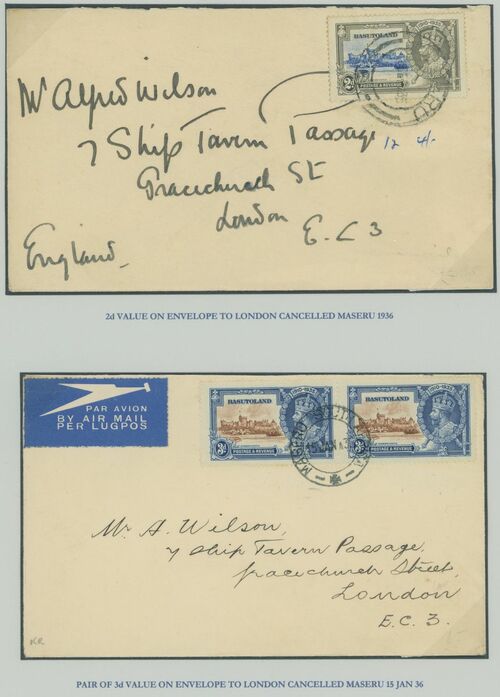 BASUTOLAND
1910-1935
2D
POSTAGE & REVENUE
Mr Alfred Wilson
7 Ship Tavern Passage
12 4/-
Gracechurch St
London
E.C 3
England
2d VALUE ON ENVELOPE TO LONDON CANCELLED MASERU 1936
PAR AVION
BY AIR MAIL
PER LUGPOS
BASUTOLAND 1910-1935
3D
POSTAGE & REVENUE
BASUTOLAND 1910-1935
3D
POSTAGE & REVENUE
MASERU
15 JAN 3
Mr. A. Wilson,
7 Ship Tavern Passage,
Gracechurch Street,
London
E.C. 3.
KR
PAIR OF 3d VALUE ON ENVELOPE TO LONDON CANCELLED MASERU 15 JAN 36